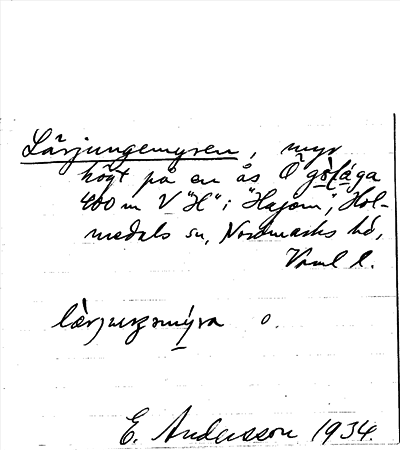 Lärjungemyren, myr
högt på en ås Ö
400 m V "H" i "Hajom", Hol-
medals sn, Nordmarks hd,
Vrml l.
lärjuŋemýra o.
E. Andersson 1934.